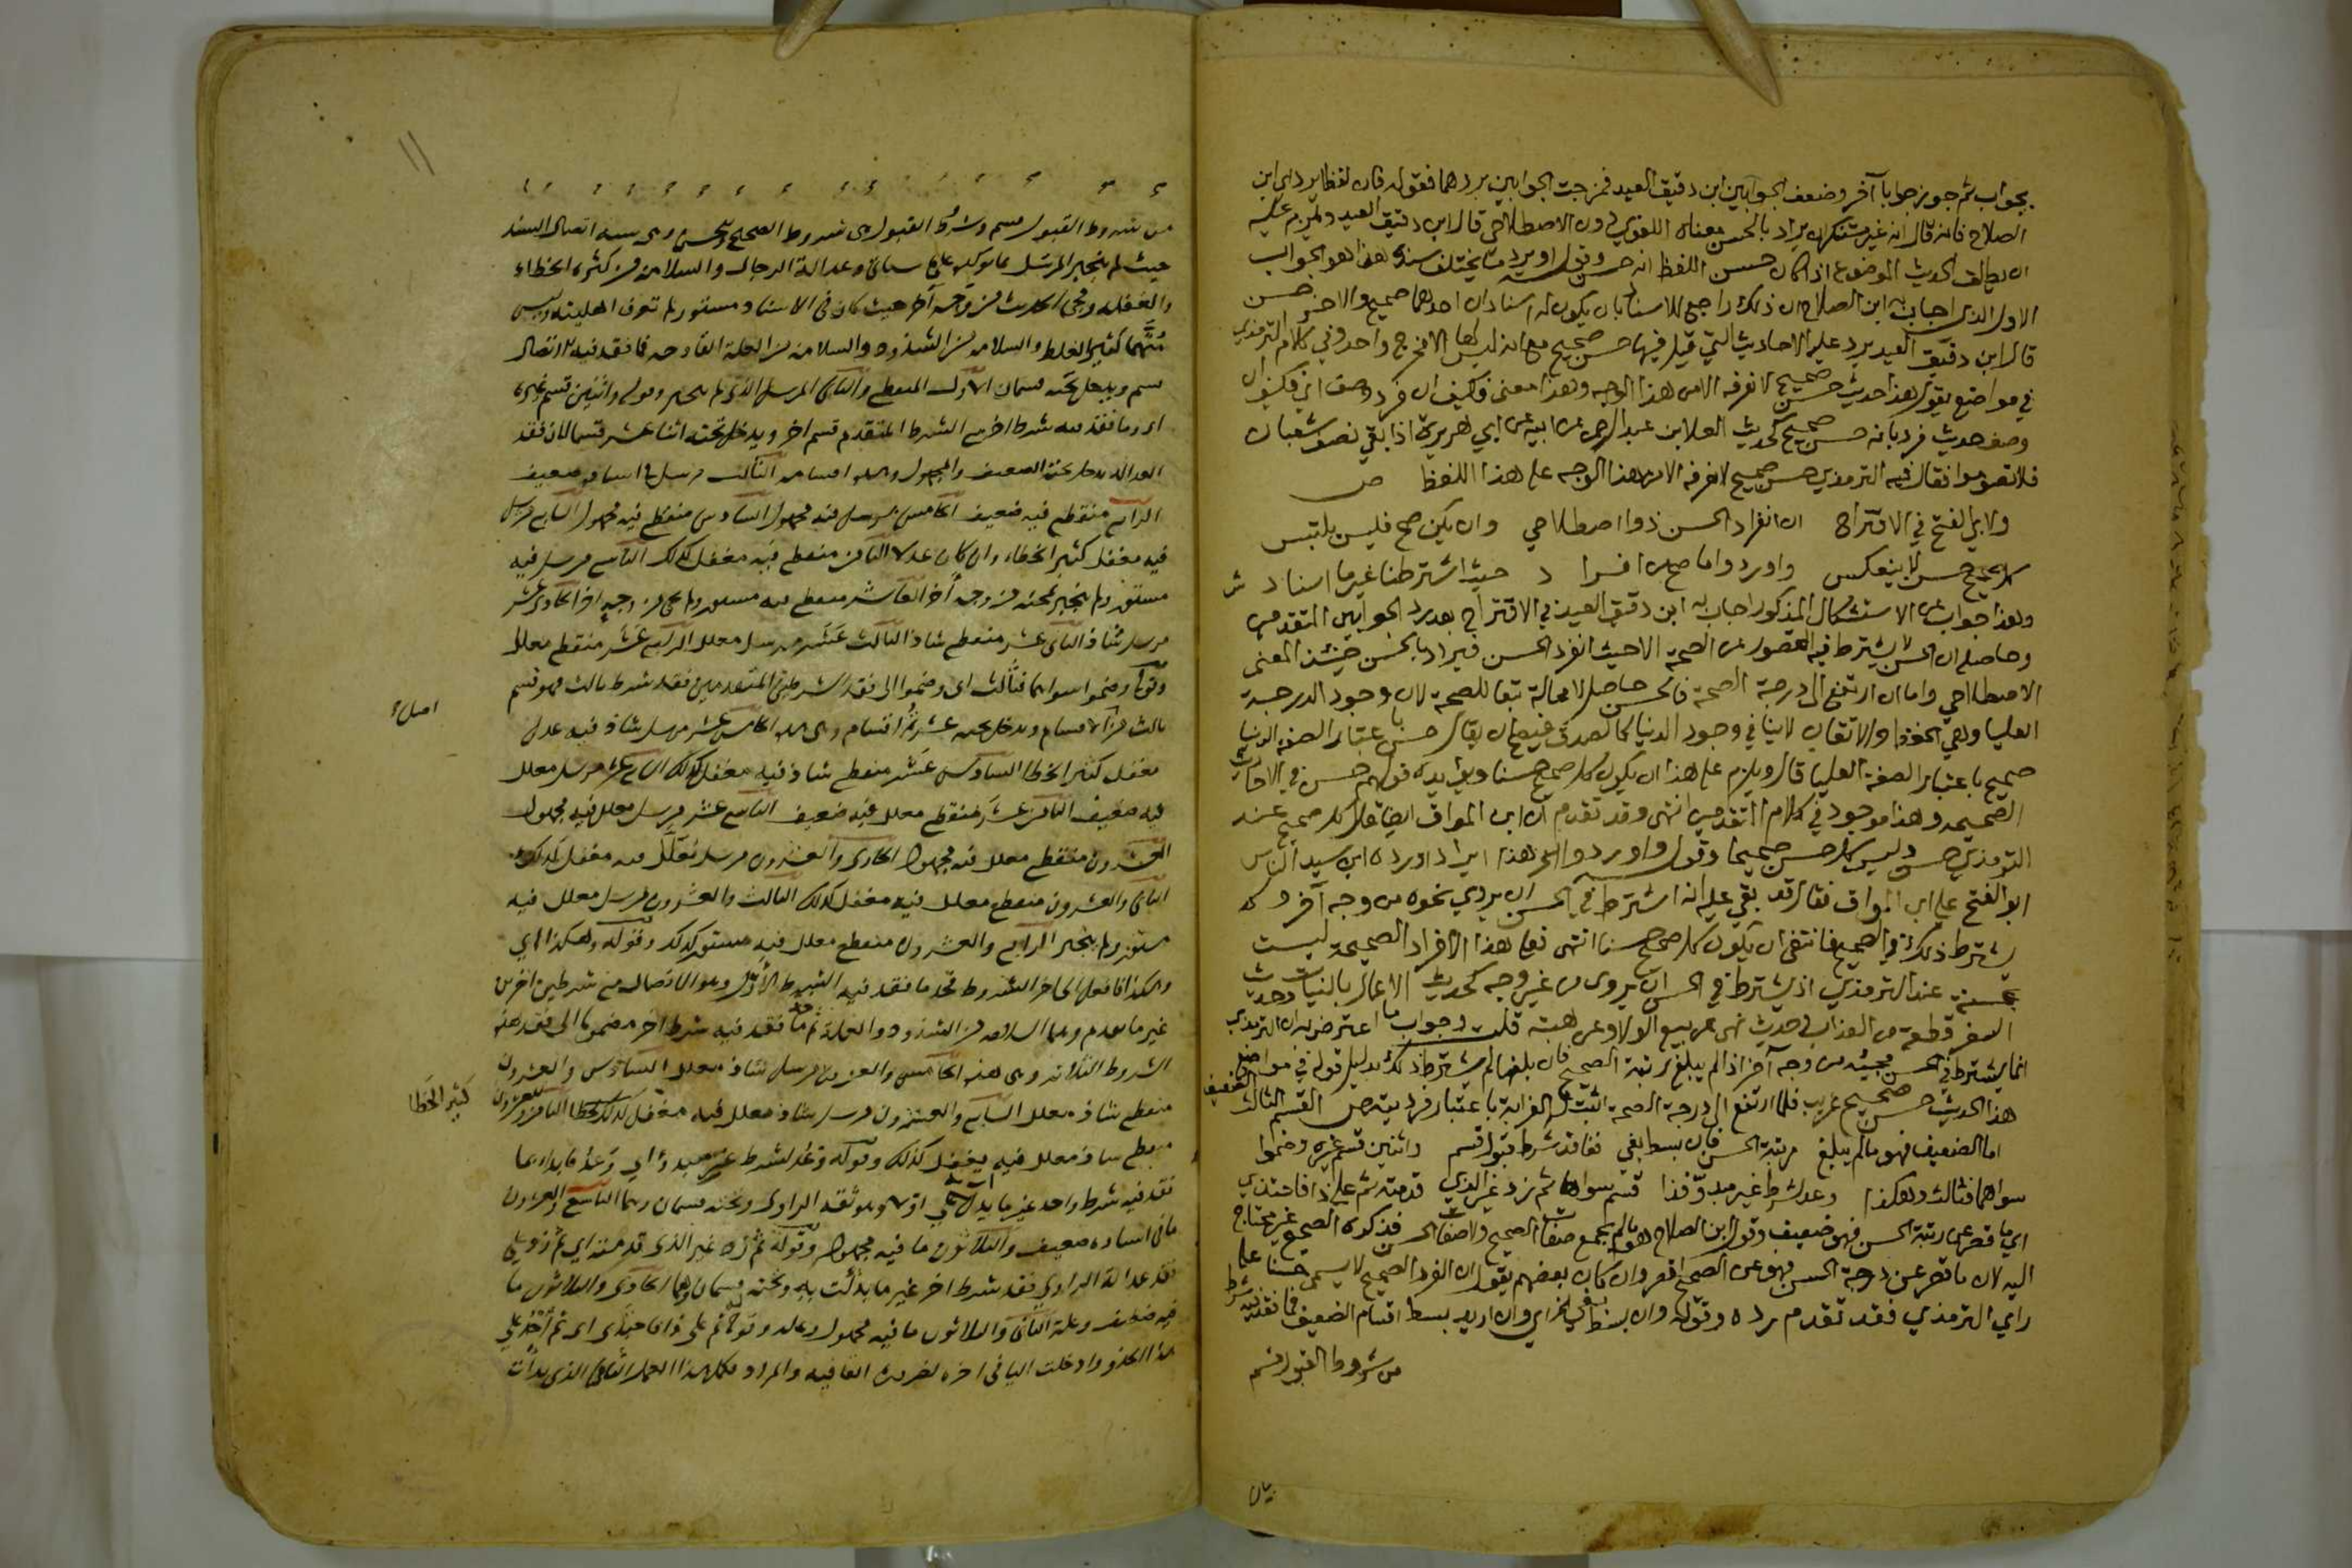 بجواب ثم جوز جوابا آخر وضعف الجوابين ابن دقيق العيد فمزجت الجوابين بردهما فقوله فان لفظا يرد اي ابن
الصلاح فانه قال انه غير مستنكر ان يراد بالحسن معناه اللغوي دون الاصطلاحي قال ابن دقيق العيد ويلزم عليه
ان يطلق الحديث الموضوع اذا كان حسن اللفظ انه حسن وقوله او يرد ما يختلف سنده هذا هو الجواب
الاول الذي اجاب به ابن الصلاح ان ذلك راجع للاسناد بان يكون له اسنادان احدهما صحيح والاخر حسن
قال ابن دقيق العيد يرد عليه الاحاديث التي قيل فيها حسن صحيح مع انه ليس لها الا مخرج واحد وفي كلام الترمذي
في مواضع يقول هذا حديث حسن صحيح لا نعرفه الا من هذا الوجه وهذا معنى فكيف ان فرد وصف اي فكيف ان
وصف حديث فرد بانه حسن صحيح كحديث العلا بن عبد الرحمن عن ابيه عن ابي هريرة اذا بقي نصف شعبان
فلا تصوموا فقال فيه الترمذي حسن صحيح لا نعرفه الا من هذا الوجه على هذا اللفظ ص
ولابي الفتح في الاقتراح ان انفراد الحسن ذو اصطلاحي وان يكن صح فليس يلتبس
كل صحيح حسن لا ينعكس واوردوا ما صح من افراد حيث اشترطنا غير ما اسناد ش
وهذا جواب عن الاستشكال المذكور اجاب به ابن دقيق العيد في الاقتراح بعد رد الجوابين المتقدمين
وحاصله ان الحسن لا يشترط فيه القصور عن الصحة الا حيث انفرد الحسن فيراد بالحسن حينئذ المعنى
الاصطلاحي واما ان ارتفع الى درجة الصحة فالحسن حاصل لا محالة تبعا للصحة لان وجود الدرجة
العليا وهي الحفظ والاتقان لا ينافي وجود الدنيا كالصدق فيصح ان يقال حسن باعتبار الصفة الدنيا
صحيح باعتبار الصفة العليا قال ويلزم على هذا ان يكون كل صحيح حسنا ويؤيده قولهم حسن في الاحاديث
الصحيحة وهذا موجود في كلام المتقدمين انتهى وقد تقدم ان ابن المواق ايضا قال كل صحيح عند
الترمذي حسن وليس كل حسن صحيحا وقوله واوردوا الى اخره هذا ايراد اورده ابن سيد الناس
ابو الفتح على ابن المواق فقال قد بقي عليه انه اشترط في الحسن ان يروي نحوه من وجه آخر ولم
يشترط ذلك في الصحيح فانتفى ان يكون كل صحيح حسنا انتهى فعلى هذا الافراد الصحيحة ليست
بحسنة عند الترمذي اذ يشترط في الحسن ان يروى من غير وجه كحديث الاعمال بالنيات وحديث
السفر قطعة من العذاب وحديث نهى عن بيع الولاء وعن هبته قلت وجواب ما اعترض به ان الترمذي
انما يشترط في الحسن مجيئه من وجه آخر اذا لم يبلغ رتبة الصحيح فان بلغها لم يشترط ذلك بدليل قوله في مواضع
هذا الحديث حسن صحيح غريب فلما ارتفع الى درجة الصحة اثبت له الغرابة باعتبار فرديته ص القسم الثالث الضعيف
اما الضعيف فهو ما لم يبلغ مرتبة الحسن فان بسط بغي ففاقد شرط قبول قسم واثنين قسم غيره وضموا
سواهما فثالث وهكذا وعد لشرط غير مبدو فذا قسم سواها ثم زد غير الذي قدمته ثم على ذا فاحتذي
اي ما قصر عن رتبة الحسن فهو ضعيف وقول ابن الصلاح هو ما لم يجمع صفات الصحيح ولا صفات الحسن فذكره الصحيح غير محتاج
اليه لان ما قصر عن درجة الحسن فهو عن الصحيح اقصر وان كان بعضهم يقول ان الفرد الصحيح لا يسمى حسنا على
راي الترمذي فقد تقدم رده وقوله وان بسط بغي الى اخره اي وان اريد بسط اقسام الضعيف فما فقد فيه شرط
من شروط القبول قسم
من شروط القبول قسم وشروط القبول هي شروط الصحيح والحسن وهي ستة اتصال السند
حيث لم ينجبر المرسل بما يؤكده على ما سياتي وعدالة الرجال والسلامة من كثرة الخطاء
والغفلة ومجي الحديث من وجه آخر حيث كان في الاسناد مستور لم تعرف اهليته وليس
متهما كثير الغلط والسلامة من الشذوذ والسلامة من العلة القادحة فما فقد فيه الاتصال
قسم ويدخل تحته قسمان الاول المنقطع والثاني المرسل الذي لم ينجبر وقوله واثنين قسم غيره
اي وما فقد فيه شرط اخر مع الشرط المتقدم قسم اخر ويدخل تحته اثنا عشر قسما لان فقد
العدالة يدخل تحته الضعيف والمجهول وهذه اقسامه الثالث مرسل في اسناده ضعيف
الرابع منقطع فيه ضعيف الخامس مرسل فيه مجهول السادس منقطع فيه مجهول السابع مرسل
فيه مغفل كثير الخطاء وان كان عدلا الثامن منقطع فيه مغفل كذلك التاسع مرسل فيه
مستور ولم ينجبر بمجيئه من وجه آخر العاشر منقطع فيه مستور ولم يجي من وجه اخر الحادي عشر
مرسل شاذ الثاني عشر منقطع شاذ الثالث عشر مرسل معلل الرابع عشر منقطع معلل
وقوله وضموا سواهما فثالث اي وضموا الى فقد الشرطين المتقدمين فقد شرط ثالث فهو قسم
ثالث من الاقسام ويدخل تحته عشرة اقسام وهي هذه الخامس عشر مرسل شاذ فيه عدل
مغفل كثير الخطا السادس عشر منقطع شاذ فيه مغفل كذلك السابع عشر مرسل معلل
فيه ضعيف الثامن عشر منقطع معلل فيه ضعيف التاسع عشر مرسل معلل فيه مجهول
العشرون منقطع معلل فيه مجهول الحادي والعشرون مرسل معلل فيه مغفل كذلك
الثاني والعشرون منقطع معلل فيه مغفل كذلك الثالث والعشرون مرسل معلل فيه
مستور ولم ينجبر الرابع والعشرون منقطع معلل فيه مستور كذلك وقوله وهكذا اي
وهكذا فافعل الى اخر الشروط فخذ ما فقد فيه الشرط الاول وهو الاتصال مع شرطين اخرين
غير ما تقدم وهما السلامة من الشذوذ والعلة ثم خذ ما فقد فيه شرط اخر مضموما الى فقد هذه
الشروط الثلاثة وهي هذه الخامس والعشرون مرسل شاذ معلل السادس والعشرون
منقطع شاذ معلل السابع والعشرون مرسل شاذ معلل فيه مغفل كذلك كثير الخطا الثامن والعشرون
منقطع شاذ معلل فيه مغفل كذلك وقوله وعد لشرط غير مبدو اي وعد فابدا بما
فقد فيه شرط واحد غير ما بدات به اولا وهو ثقة الراوي وتحته قسمان وهما التاسع والعشرون
ما في اسناده ضعيف والثلاثون ما فيه مجهول وقوله ثم زد غير الذي قدمته اي ثم زد على
فقد عدالة الراوي فقد شرط اخر غير ما بدأت به وتحته قسمان وهما الحادي والثلاثون ما
فيه ضعيف وعلة الثاني والثلاثون ما فيه مجهول وعلة وقوله ثم على ذا فاحتذي اي ثم احذ على
هذا الحذو وادخلت اليا في اخره لضرورة القافيه والمراد فكمل هذا العمل الثاني الذي بدأت
اصل
كثير الخطا
١١